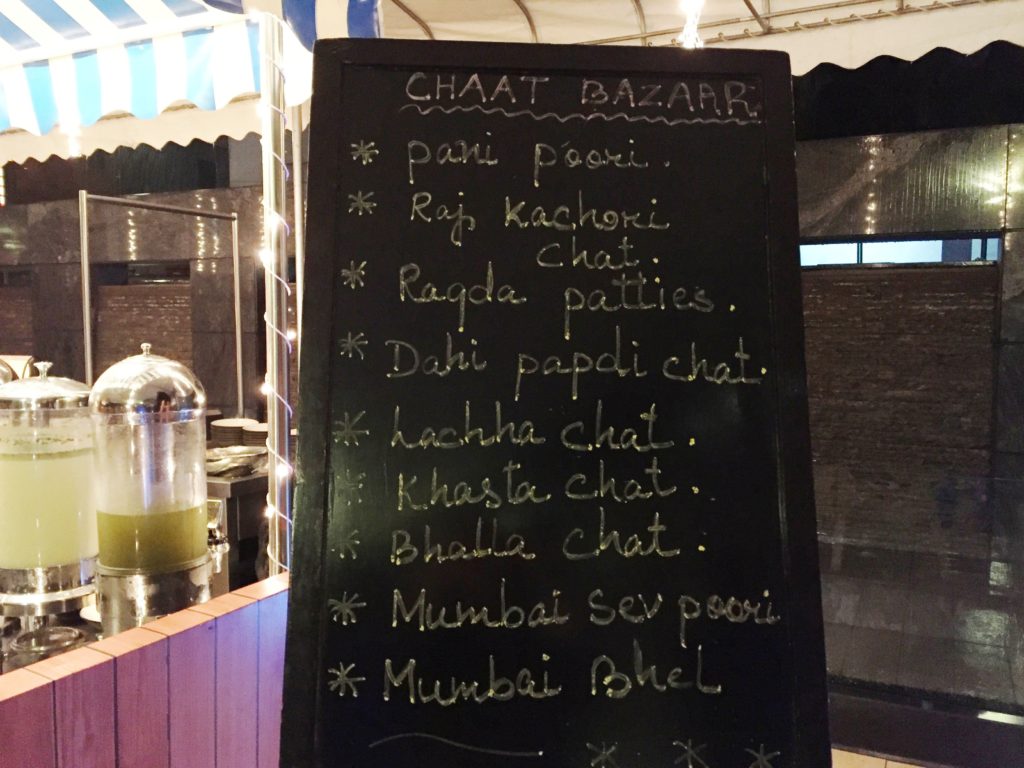 CHAAT BAZAAR
* pani poori.
* Raj Kachori
Chat.
* Ragda patties.
* Dahi papdi chat.
* Lachha chat.
* Khasta chat.
* Bhalla chat.
* Mumbai Sev poori
* Mumbai Bhel
* * *